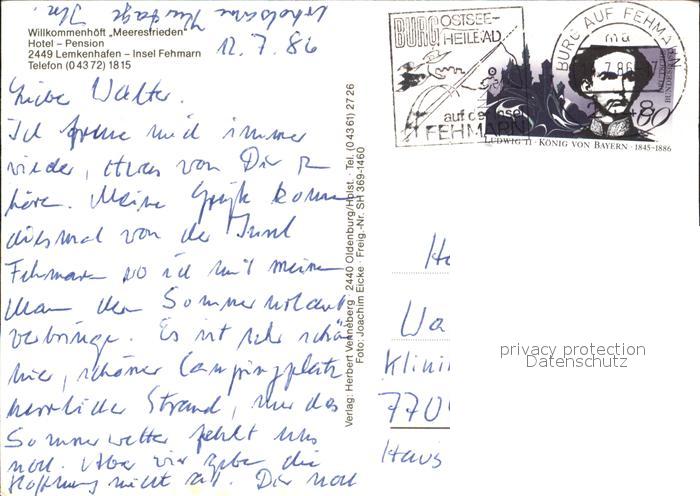 erholsame Kurtage
Ihr.
Willkommenhöft „Meeresfrieden"
Hotel – Pension
2449 Lemkenhafen – Insel Fehmarn
Telefon (0 43 72) 18 15
12.7.86
Liebe Walter.
Ich freue mich immer
wieder, etwas von Dir zu
hören. Meine Grüße kommen
diesmal von der Insel
Fehmarn wo ich mit meinem
Mann den Sommerurlaub
verbringe. Es ist sehr schön
hier, schöner Campingplatz
herrlicher Strand, nur das
Sommerwetter fehlt uns
noch. Aber wir geben die
Hoffnung nicht auf. Dir noch
Verlag: Herbert Venneberg · 2440 Oldenburg/Holst. · Tel. (0 43 61) 27 26
Foto: Joachim Eicke · Freig.-Nr. SH 369-1460
BURG OSTSEE-
HEILBAD
auf der Insel
FEHMARN
BURG AUF FEHMARN
ma
7.86
80
LUDWIG II · KÖNIG VON BAYERN · 1845-1886
He
Wa
Klini
770
Haus
privacy protection
Datenschutz